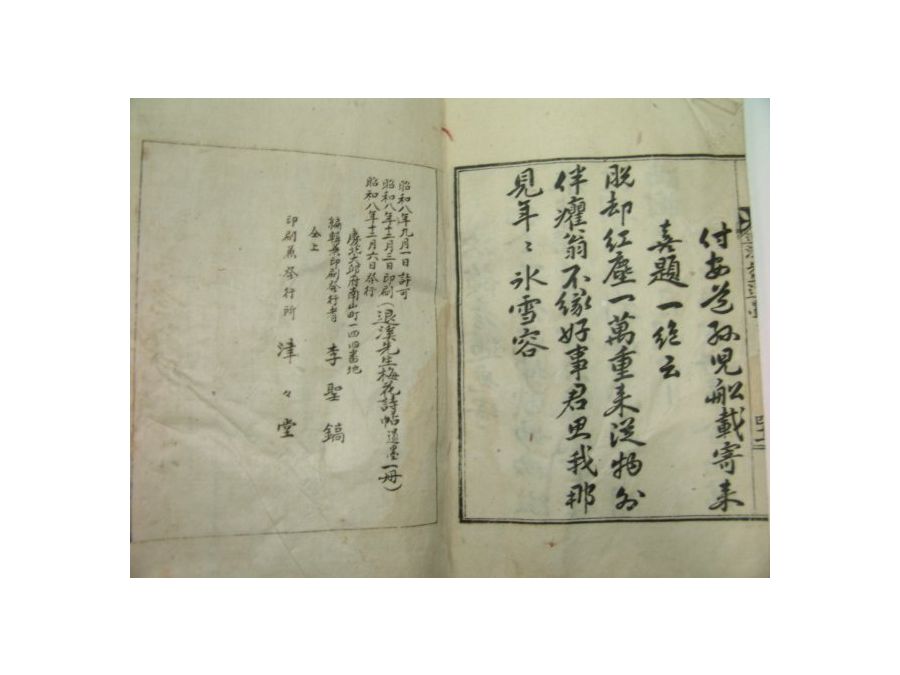 付安道孫兒船載寄来
喜題一絶云
脱却紅塵一萬重来從物外
伴癯翁不緣好事君思我那
見年〻氷雪容
昭和八年九月一日許可
昭和八年十二月三日印刷(退溪先生梅花詩帖遺墨一册)
昭和八年十二月六日發行
慶北大邱府南山町一四四番地
編輯兼印刷發行者 李聖鎬
仝上
印刷兼發行所 津々堂